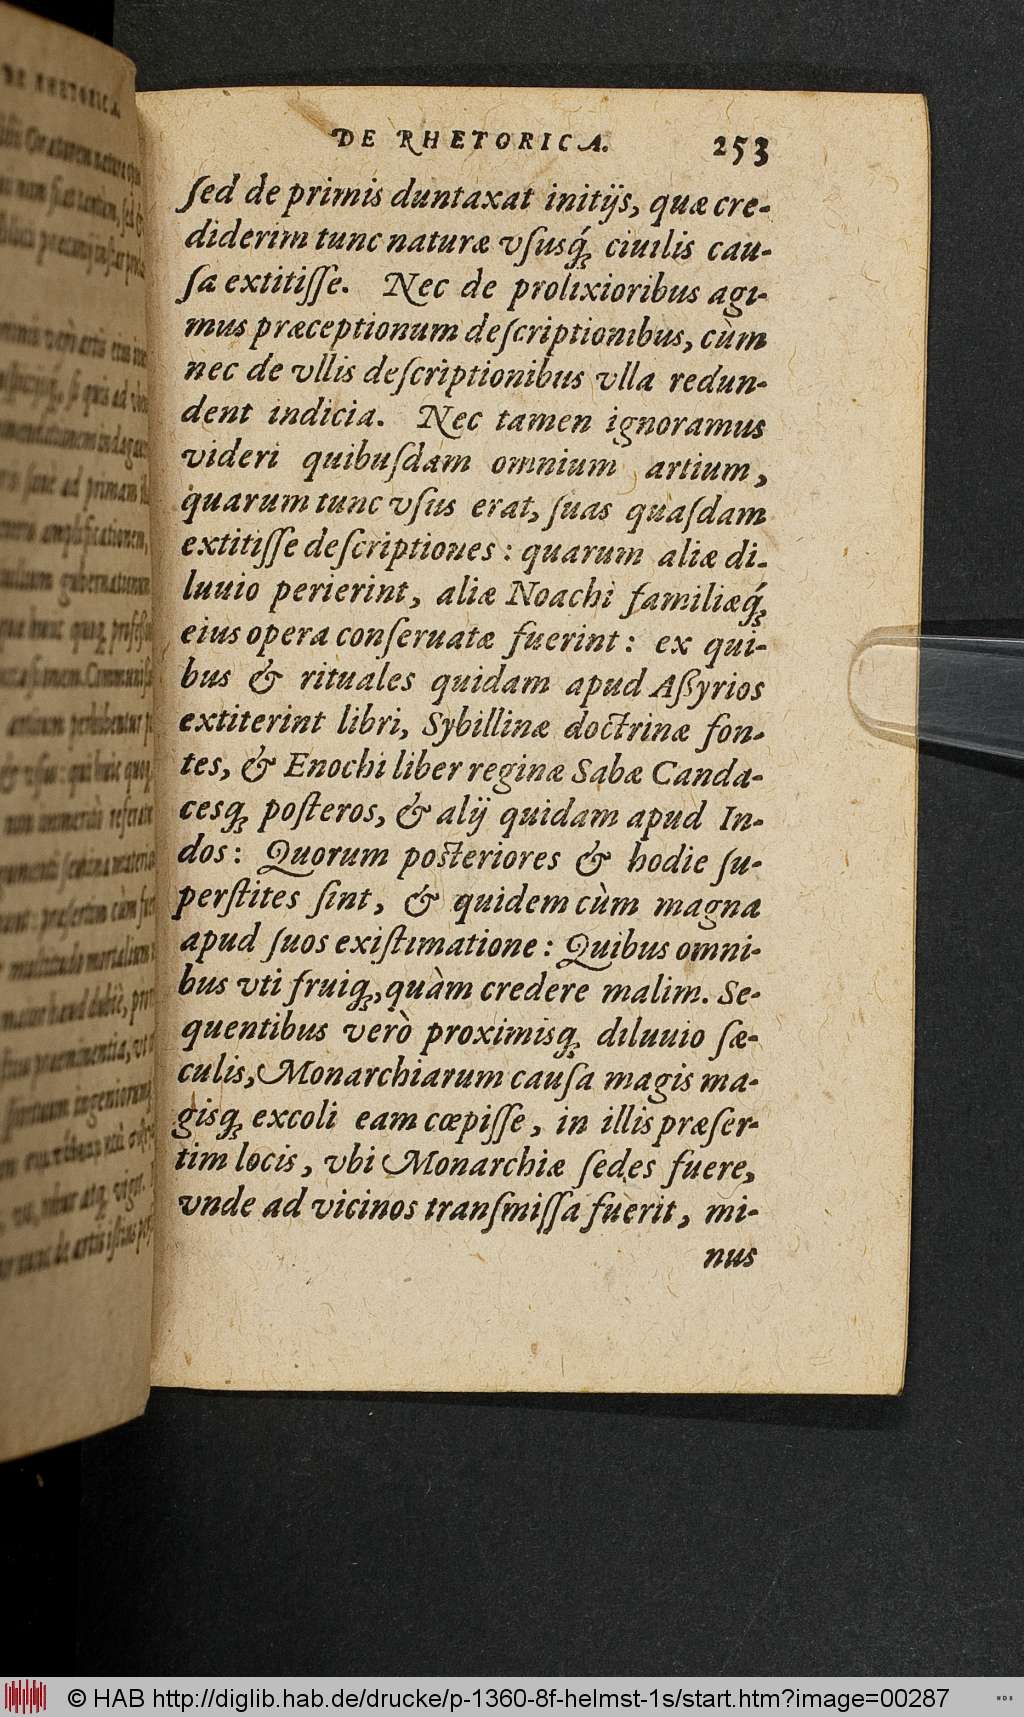 DE RHETORICA. 253
ſed de primis duntaxat initijs, quæ cre-
diderim tunc naturæ vſusq́; ciuilis cau-
ſa extitiſſe. Nec de prolixioribus agi-
mus præceptionum deſcriptionibus, cùm
nec de vllis deſcriptionibus vlla redun-
dent indicia. Nec tamen ignoramus
videri quibuſdam omnium artium,
quarum tunc vſus erat, ſuas quaſdam
extitiſſe deſcriptiones: quarum aliæ di-
luuio perierint, aliæ Noachi familiæq́;
eius opera conſeruatæ fuerint: ex qui-
bus & rituales quidam apud Aßyrios
extiterint libri, Sybillinæ doctrinæ fon-
tes, & Enochi liber reginæ Sabæ Canda-
cesq; poſteros, & alij quidam apud In-
dos: Quorum posteriores & hodie ſu-
perſtites ſint, & quidem cùm magna
apud ſuos exiſtimatione: Quibus omni-
bus vti fruiq;, quàm credere malim. Se-
quentibus verò proximisq; diluuio ſæ-
culis, Monarchiarum cauſa magis ma-
gisq; excoli eam cœpiſſe, in illis præſer-
tim locis, vbi Monarchiæ ſedes fuere,
vnde ad vicinos tranſmiſſa fuerit, mi-
nus
© HAB http://diglib.hab.de/drucke/p-1360-8f-helmst-1s/start.htm?image=00287